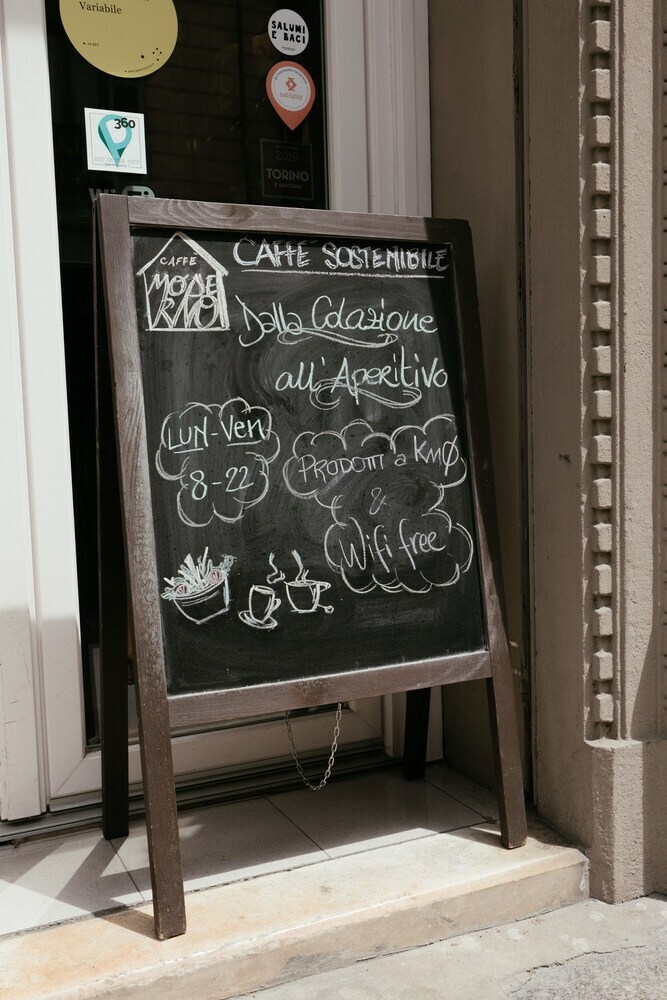 Variabile
SALUMI
E BACI
satispay
360
2019
TORINO
Wi Fi
CAFFÈ
MODE
RNO
CAFFÈ SOSTENIBILE
Dalla Colazione
all'Aperitivo
LUN-Ven
8-22
PRODOTTI a KMØ
&
Wifi free